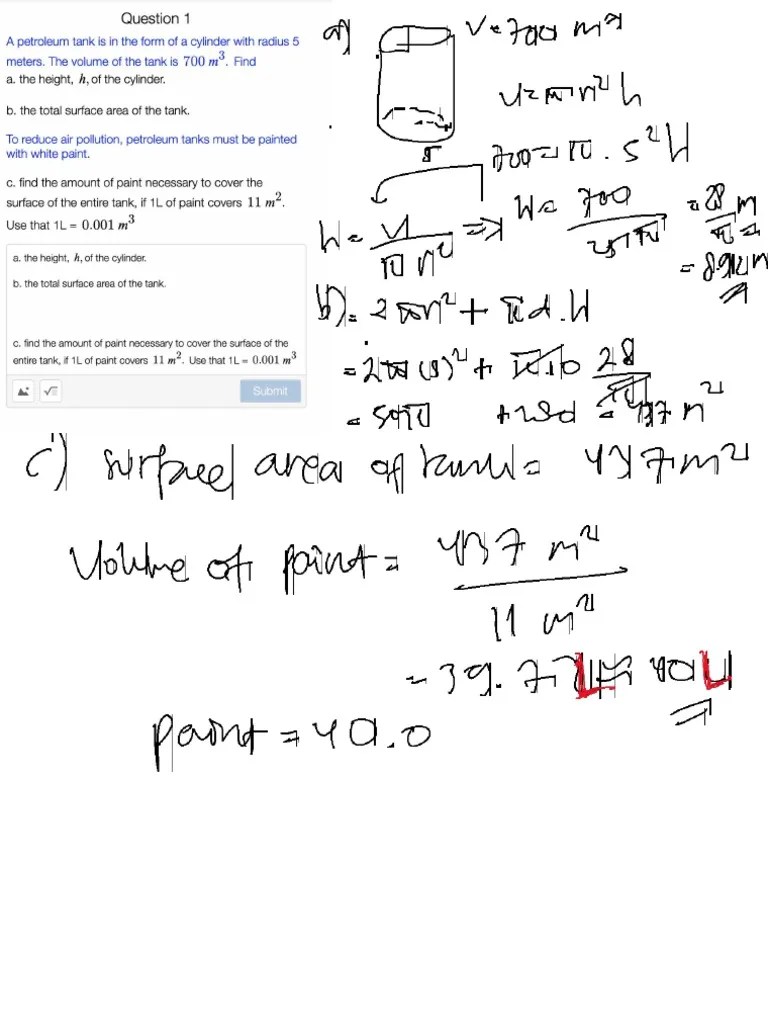 Question 1
A petroleum tank is in the form of a cylinder with radius 5
meters. The volume of the tank is 700 m³. Find
a. the height, h, of the cylinder.
b. the total surface area of the tank.
To reduce air pollution, petroleum tanks must be painted
with white paint.
c. find the amount of paint necessary to cover the
surface of the entire tank, if 1L of paint covers 11 m².
Use that 1L = 0.001 m³
a. the height, h, of the cylinder.
b. the total surface area of the tank.
c. find the amount of paint necessary to cover the surface of the
entire tank, if 1L of paint covers 11 m². Use that 1L = 0.001 m³
Submit
a) V = 700 m³
V = π r² h
5
700 = π . 5² H
h = V / π r² => H = 700 / 25π = 28 / π m
= 8.912 m
b) = 2πr² + πd.H
= 2π(5)² + π.10 28 / π
= 50π + 280 = 437 m²
c) surface area of tank = 437 m²
Volume of paint = 437 m² / 11 m²
= 39.72 L ≈ 40 L
paint = 40.0